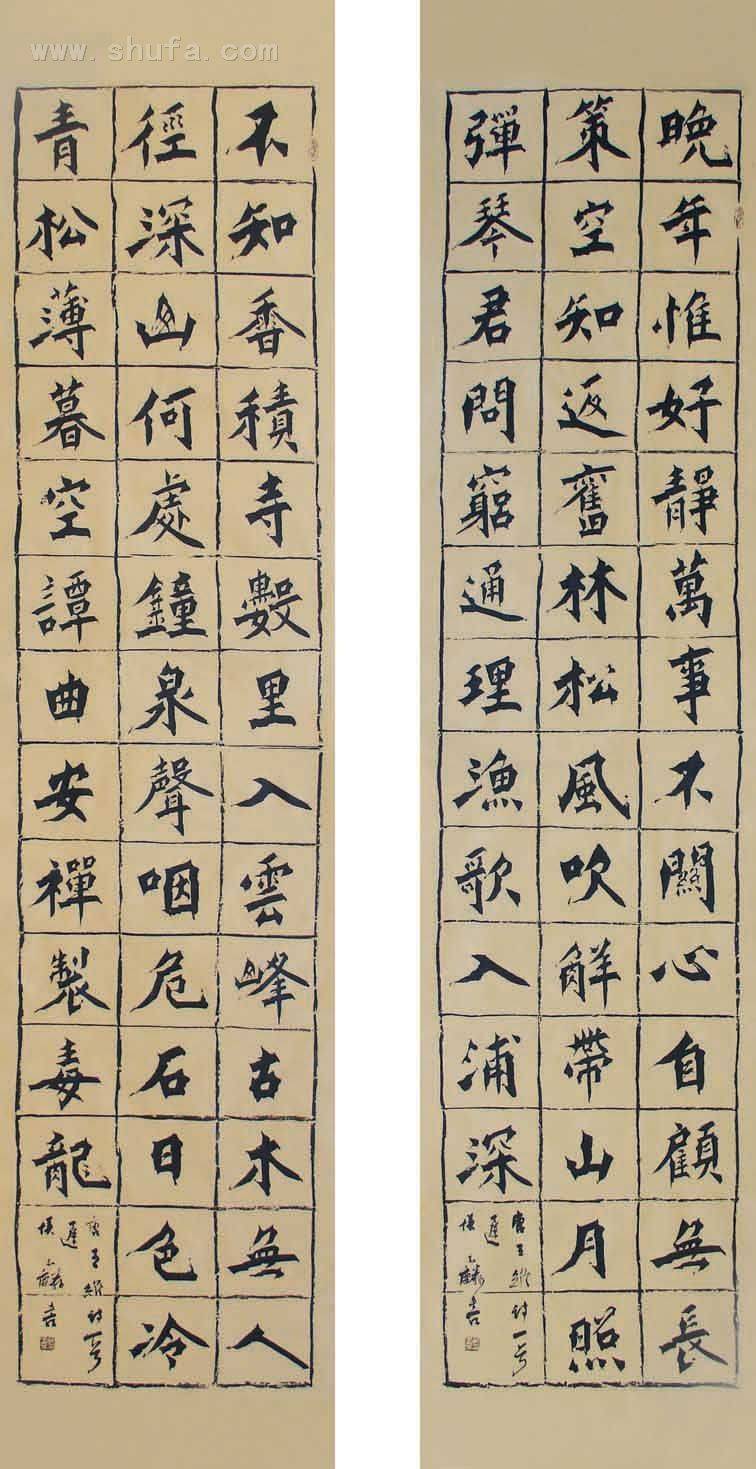 www.shufa.com
晚年惟好靜萬事不關心自顧無長
策空知返舊林松風吹解帶山月照
彈琴君問窮通理漁歌入浦深
唐王維詩一首
不知香積寺數里入雲峰古木無人
徑深山何處鐘泉聲咽危石日色冷
青松薄暮空譚曲安禪製毒龍
唐王維詩一首